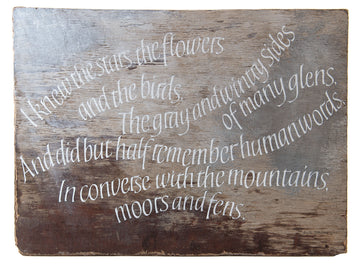 I knew the stars, the flowers
and the birds,
The gray and wintry sides
of many glens,
And did but half remember human words,
In converse with the mountains,
moors and fens.